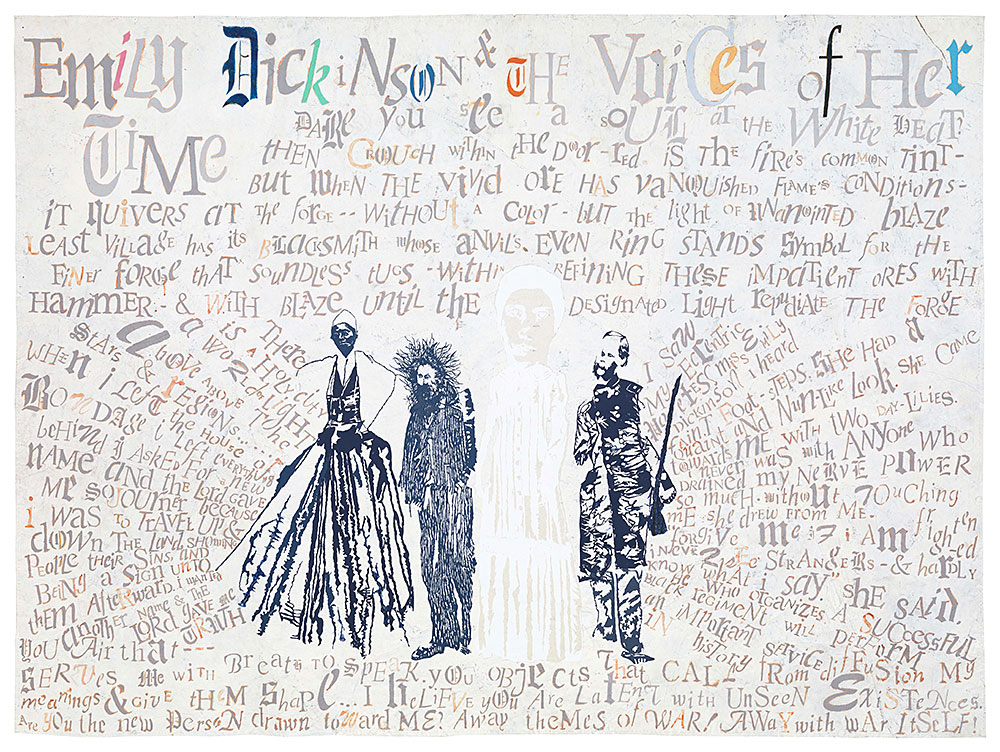 Emily Dickinson & THE Voices of Her
TIME DARE you see a soUL AT THE White HEAT?
tHEN CROUCH within tHE DOOR-red is The fire's common tint-
But wHEN THE vivid ore HAS vaNQUISHED FLAME'S CONDitions-
iT QUIVERS AT THE forge -- WiTHOUT A COLOR - BUT THE light OF UNANOINTED BLAZE
LEAST VILLAGE HAS its BLACKSMITH WHOSE ANVIL'S EVEN RING STANDS SymBoL FOR tHE
FiNER forge tHAT SOUNDLESS tUGS - WITHIN REFINING THESE iMPATIENT ORES WiTH
HAMMER & WiTH BLAZE UNTiL tHE DESIGNATED LIGHT repudiate THE FORGE
THERE
is A HOLY CITY
a WORLD OF LIGHT
Above
STARS &
regions...
WHEN i Left tHE HOUSE of
BONDAGE i Left EVERYTHING
beHind i ASKED FOR a NEW
NAME AND the LORD GAVE
ME SOJOURNER because
i WAS TO TRAVEL UP &
dOWN THE LAND SHOWING
People tHEIR SINS AND
BeiNG a SIGN UNTO
tHEM AfterWARD i WANTED
another Name & THE
LORD GAVE ME
TRUTH
i SAW
EMILY
i heard
FOOT-STEPS. SHE HAD a
QUAINT and Nun-Like Look SHE CAME
towards ME WiTH TWO DAY-LILIES.
i NEVER was with ANYONE WHO
DRAINED my NERVE POWER
so much. without TOUCHING
ME she drew from ME.
forgive me if i am frightened
i NEVER see STRANGERS - & hardly
know what i say" she said.
WHO ORGANIZES A SUCCESSFUL
BLACK REGIMENT WILL PERFORM
AN iMPORTANT SERVICE iN
HiSTORY
YOU Air that ---
SERVES Me WITH BreatH TO SPEAK. you OBJECTS that CALL from diffusion My
meanings & GIVE tHEM SHAPE... I BELIEVE YOU ARE LaTENT with UnSeeN EXiSTeNCES.
Are YOU the new PersoN drawn toWard ME? AwAy tHeMes of WAR! AWAY with wAr ItSeLF!